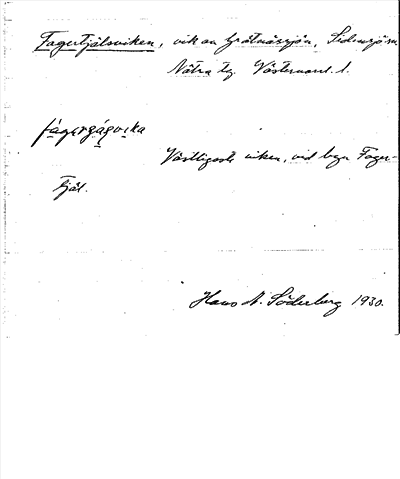 Fagertjälsviken, vik av Gråtnässjön, Sidensjö sn
Nätra tg. Västernorrl. l.
fagərgágvika
Västligaste viken, vid byn Fager-
tjäl.
Hans A. Söderberg 1930.